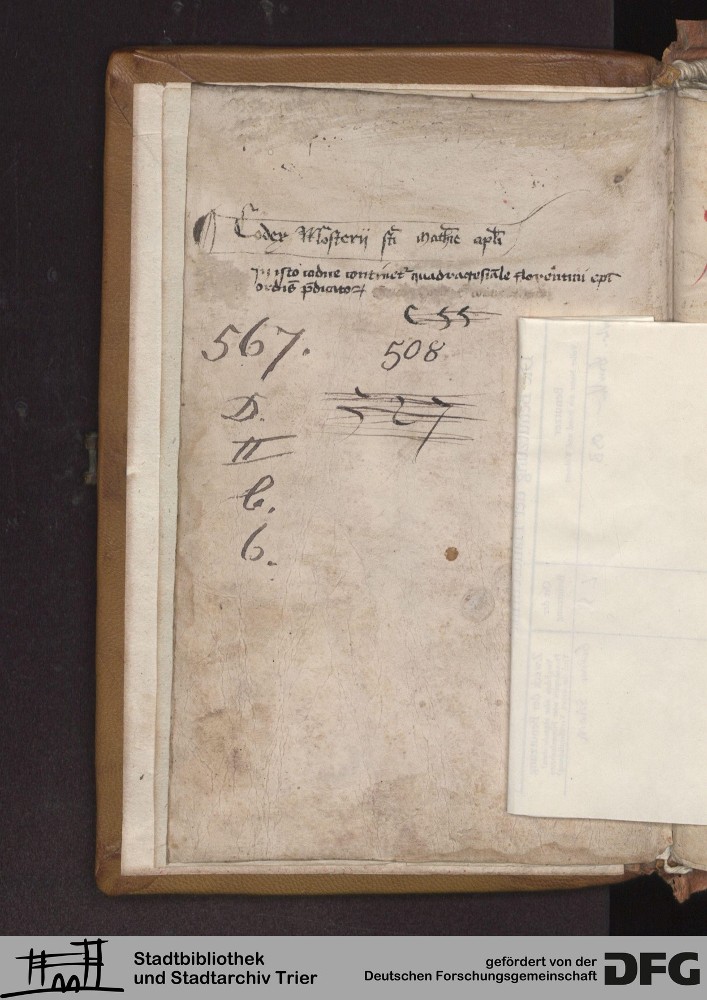 Codex Mo͞sterij s͞ti Mathie ap͞li
In isto codice continet᷑ quadragesimale florentini ep͞i
ordīs p̄dicatoꝝ
C 55
567. 508
D. 527
II
b.
6.
Stadtbibliothek
und Stadtarchiv Trier
gefördert von der
Deutschen Forschungsgemeinschaft
DFG